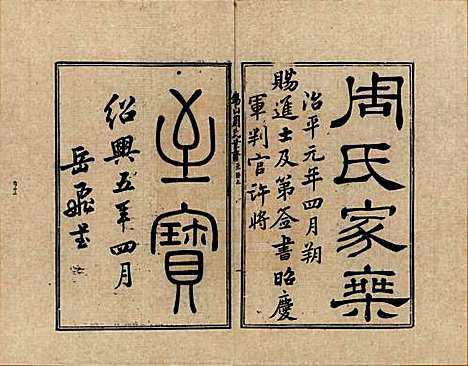 周氏家乘
治平元年四月朔
賜進士及第簽書昭慶
軍判官許將
至寶
紹興五年四月
岳飛